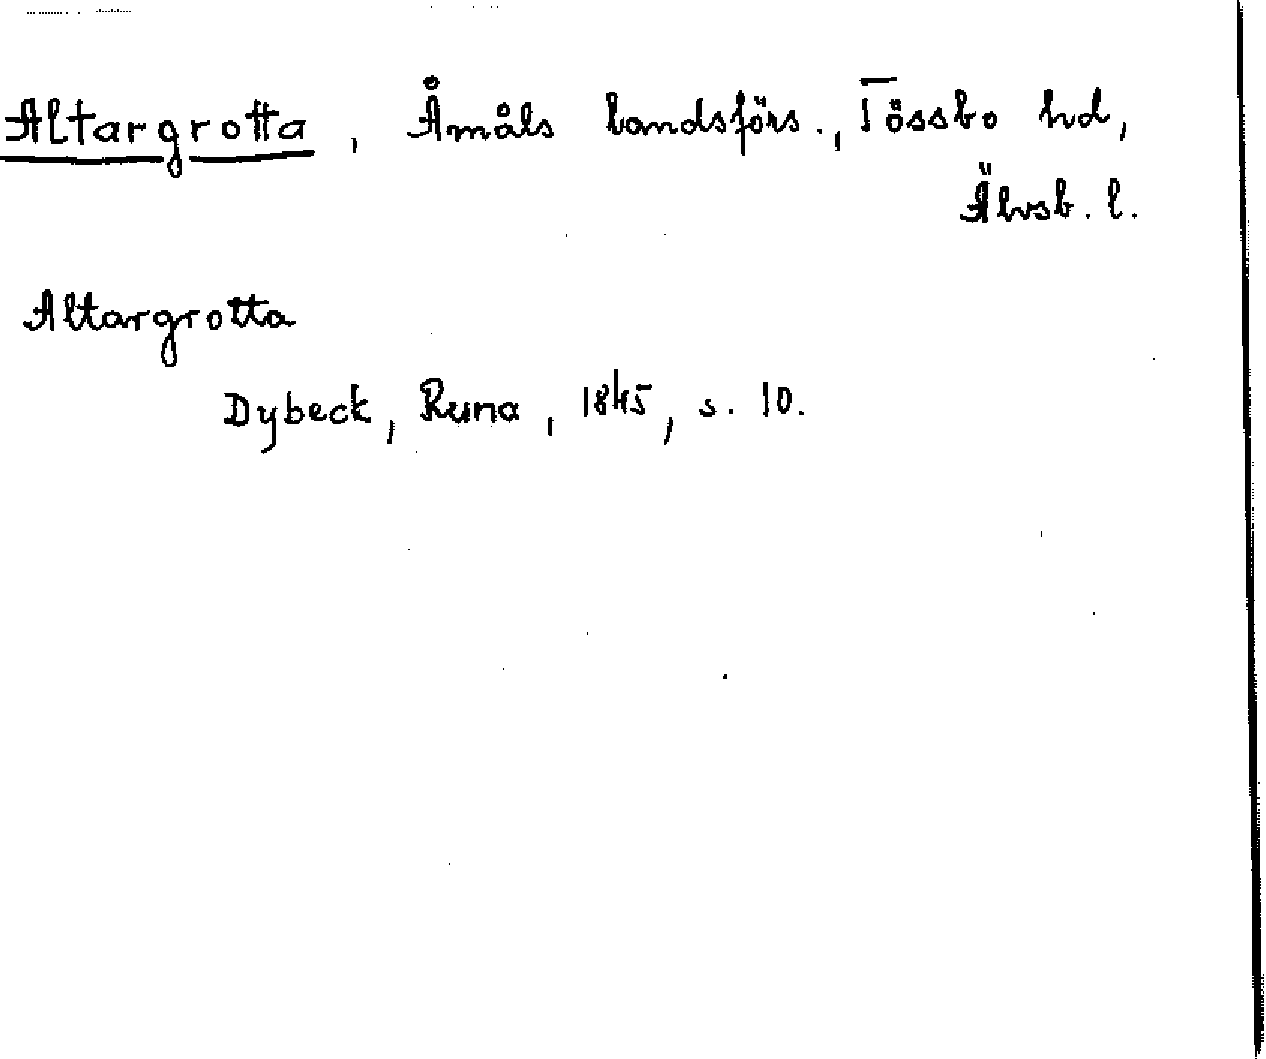 Altargrotta, Åmåls landsförs., Tössbo hd,
Älvsb. l.
Altargrotta
Dybeck, Runa, 1845, s. 10.